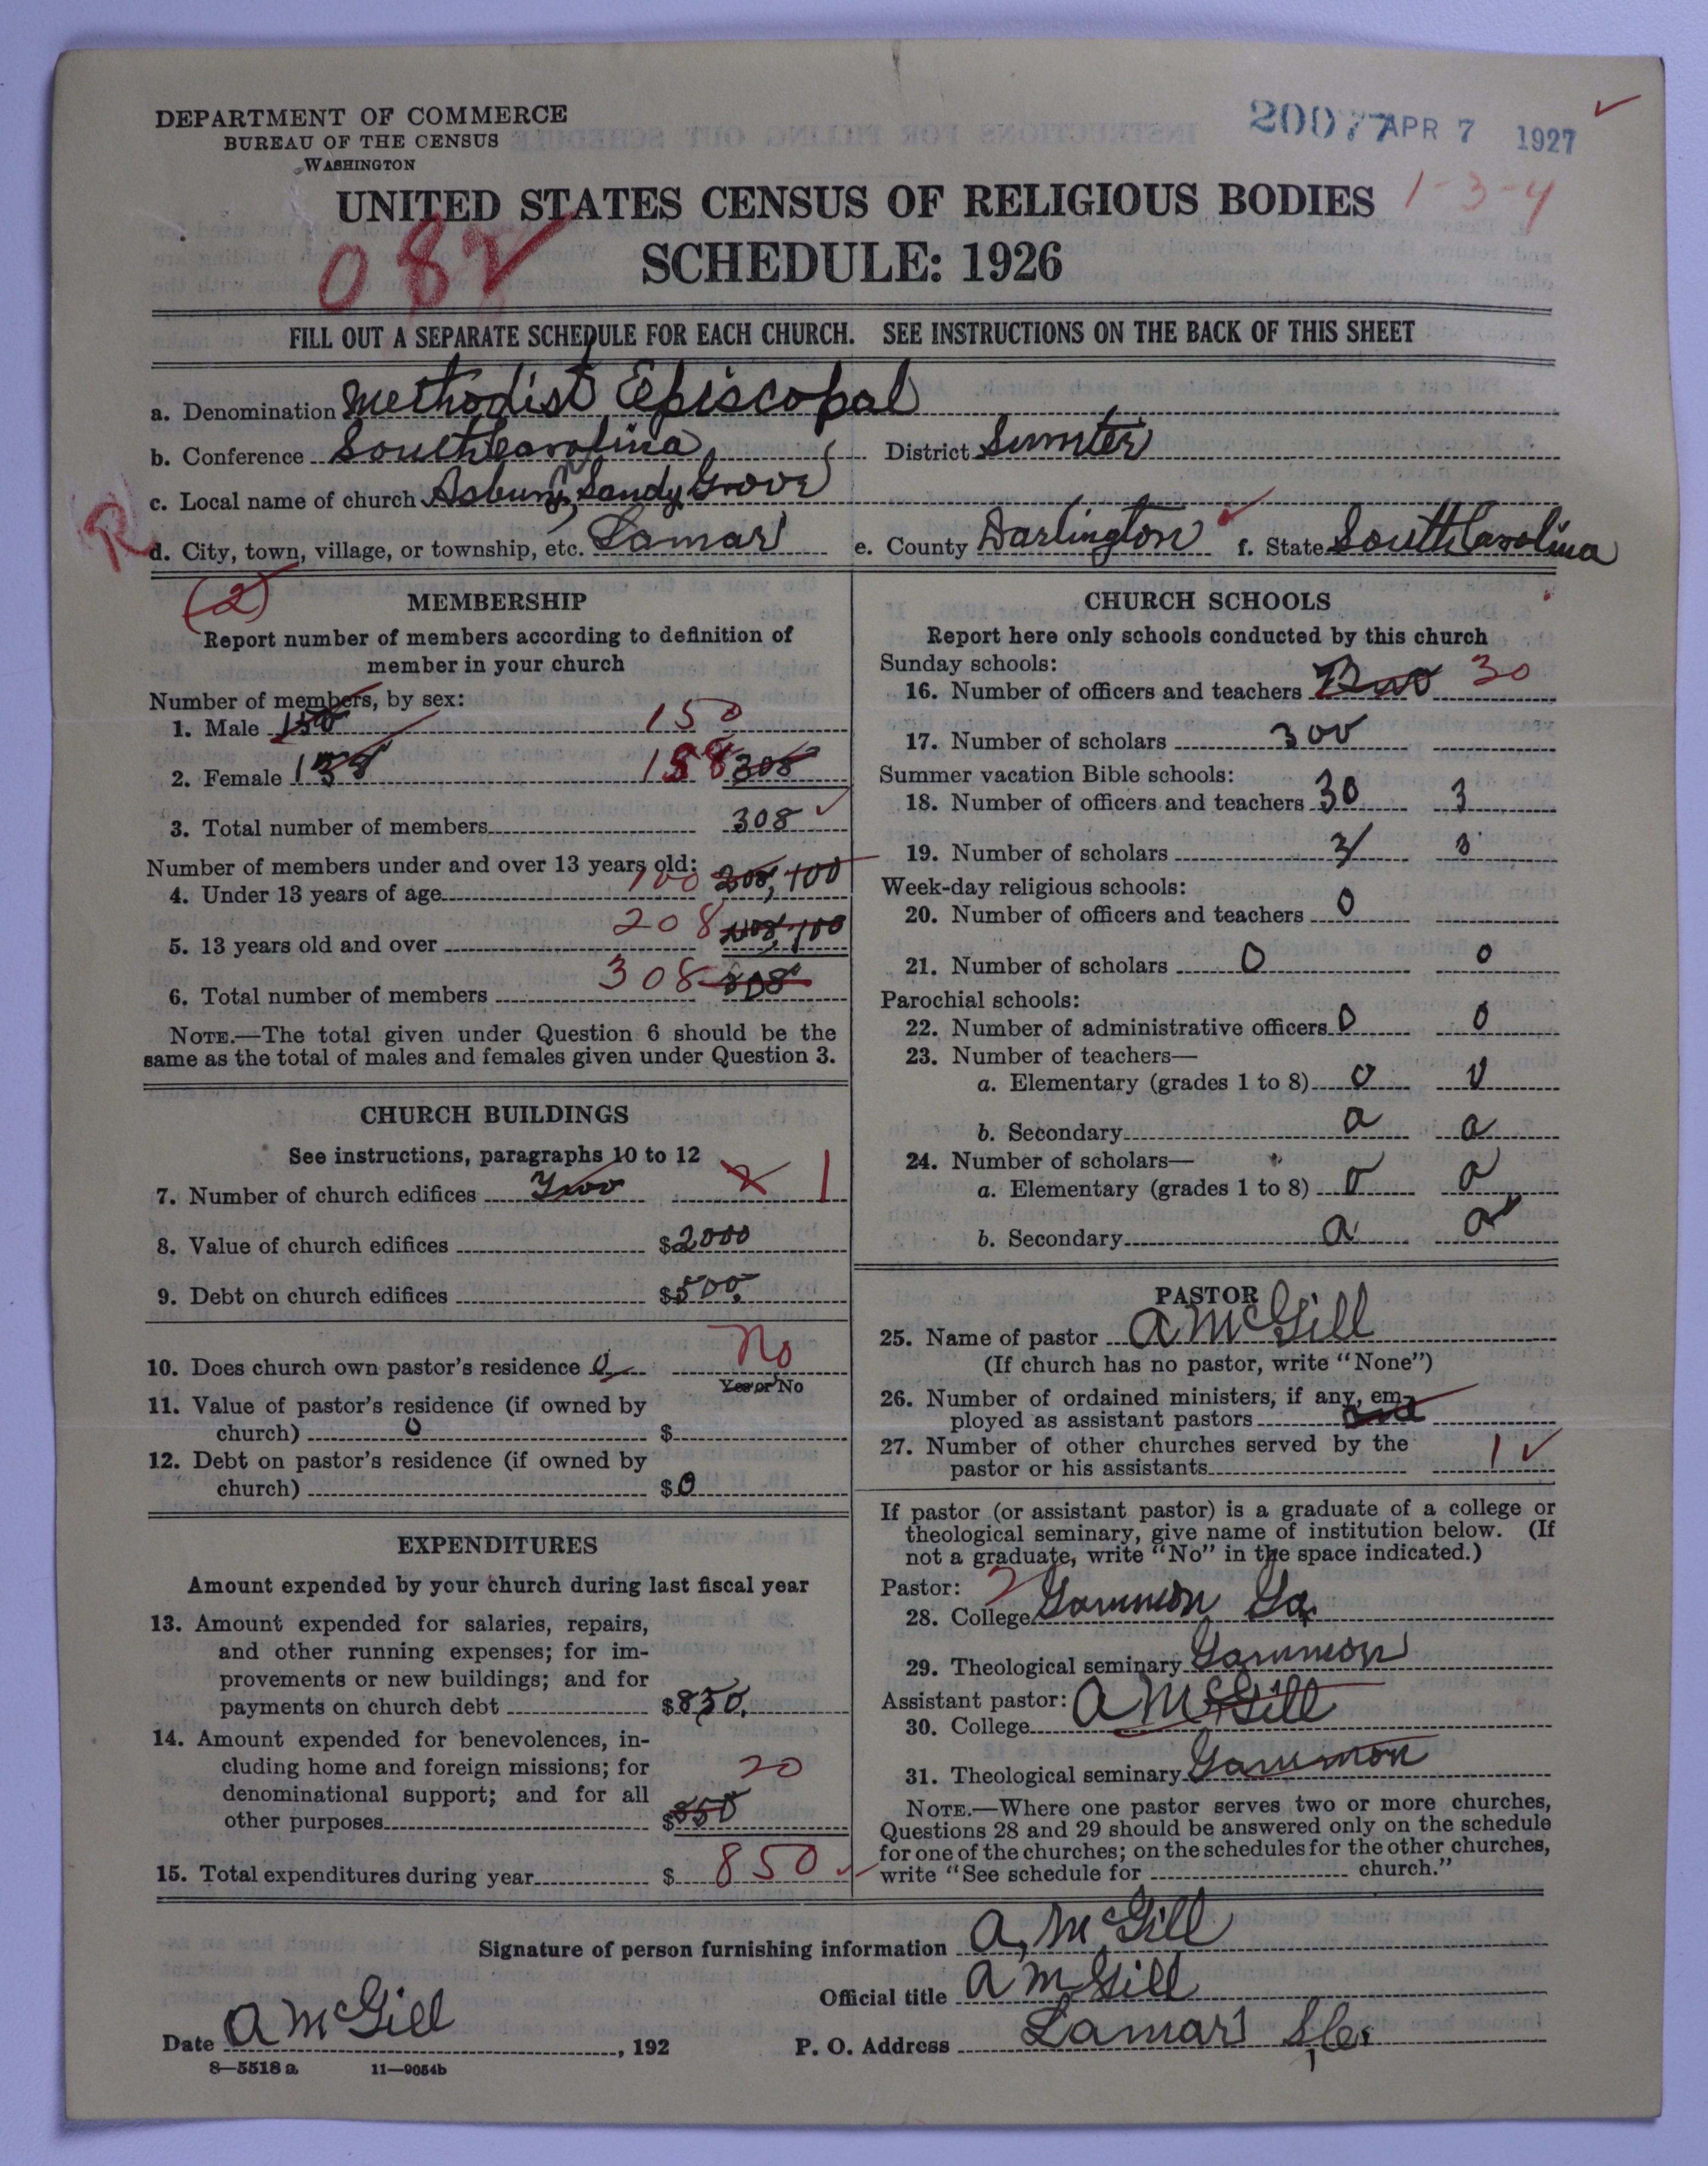 DEPARTMENT OF COMMERCE
BUREAU OF THE CENSUS
WASHINGTON
20077 APR 7 1927
1-3-4
UNITED STATES CENSUS OF RELIGIOUS BODIES
SCHEDULE: 1926
082
FILL OUT A SEPARATE SCHEDULE FOR EACH CHURCH. SEE INSTRUCTIONS ON THE BACK OF THIS SHEET
a. Denomination Methodist Episcopal
b. Conference South Carolina District Sumter
c. Local name of church Asbury, Sandy Grove
R
d. City, town, village, or township, etc. Lamar e. County Darlington f. State South Carolina
(2)
MEMBERSHIP
Report number of members according to definition of
member in your church
Number of members, by sex:
1. Male 150 150
2. Female 158 158 308
3. Total number of members 308
Number of members under and over 13 years old:
4. Under 13 years of age 100 208, 100
5. 13 years old and over 208 100
6. Total number of members 308 308
NOTE.—The total given under Question 6 should be the
same as the total of males and females given under Question 3.
CHURCH BUILDINGS
See instructions, paragraphs 10 to 12
7. Number of church edifices Two 2 1
8. Value of church edifices $2000
9. Debt on church edifices $500.
10. Does church own pastor's residence 0 No
Yes or No
11. Value of pastor's residence (if owned by
church) 0 $
12. Debt on pastor's residence (if owned by
church) $0
EXPENDITURES
Amount expended by your church during last fiscal year
13. Amount expended for salaries, repairs,
and other running expenses; for im-
provements or new buildings; and for
payments on church debt $830.
14. Amount expended for benevolences, in-
cluding home and foreign missions; for
denominational support; and for all
other purposes 20 $850
15. Total expenditures during year $ 850
CHURCH SCHOOLS
Report here only schools conducted by this church
Sunday schools:
16. Number of officers and teachers 30
17. Number of scholars 300
Summer vacation Bible schools:
18. Number of officers and teachers 30 3
19. Number of scholars 3 3
Week-day religious schools:
20. Number of officers and teachers 0
21. Number of scholars 0 0
Parochial schools:
22. Number of administrative officers 0 0
23. Number of teachers—
a. Elementary (grades 1 to 8) 0 0
b. Secondary 0 0
24. Number of scholars—
a. Elementary (grades 1 to 8) 0 0
b. Secondary 0 0
PASTOR
25. Name of pastor A McGill
(If church has no pastor, write "None")
26. Number of ordained ministers, if any, em-
ployed as assistant pastors
27. Number of other churches served by the
pastor or his assistants 1
If pastor (or assistant pastor) is a graduate of a college or
theological seminary, give name of institution below. (If
not a graduate, write "No" in the space indicated.)
Pastor:
28. College Gammon Ga.
29. Theological seminary Gammon
Assistant pastor:
30. College A McGill
31. Theological seminary Gammon
NOTE.—Where one pastor serves two or more churches,
Questions 28 and 29 should be answered only on the schedule
for one of the churches; on the schedules for the other churches,
write "See schedule for church."
Signature of person furnishing information A, McGill
Official title A McGill
Date A McGill, 192 P. O. Address Lamar S.C.
8—5518 a 11—9054b